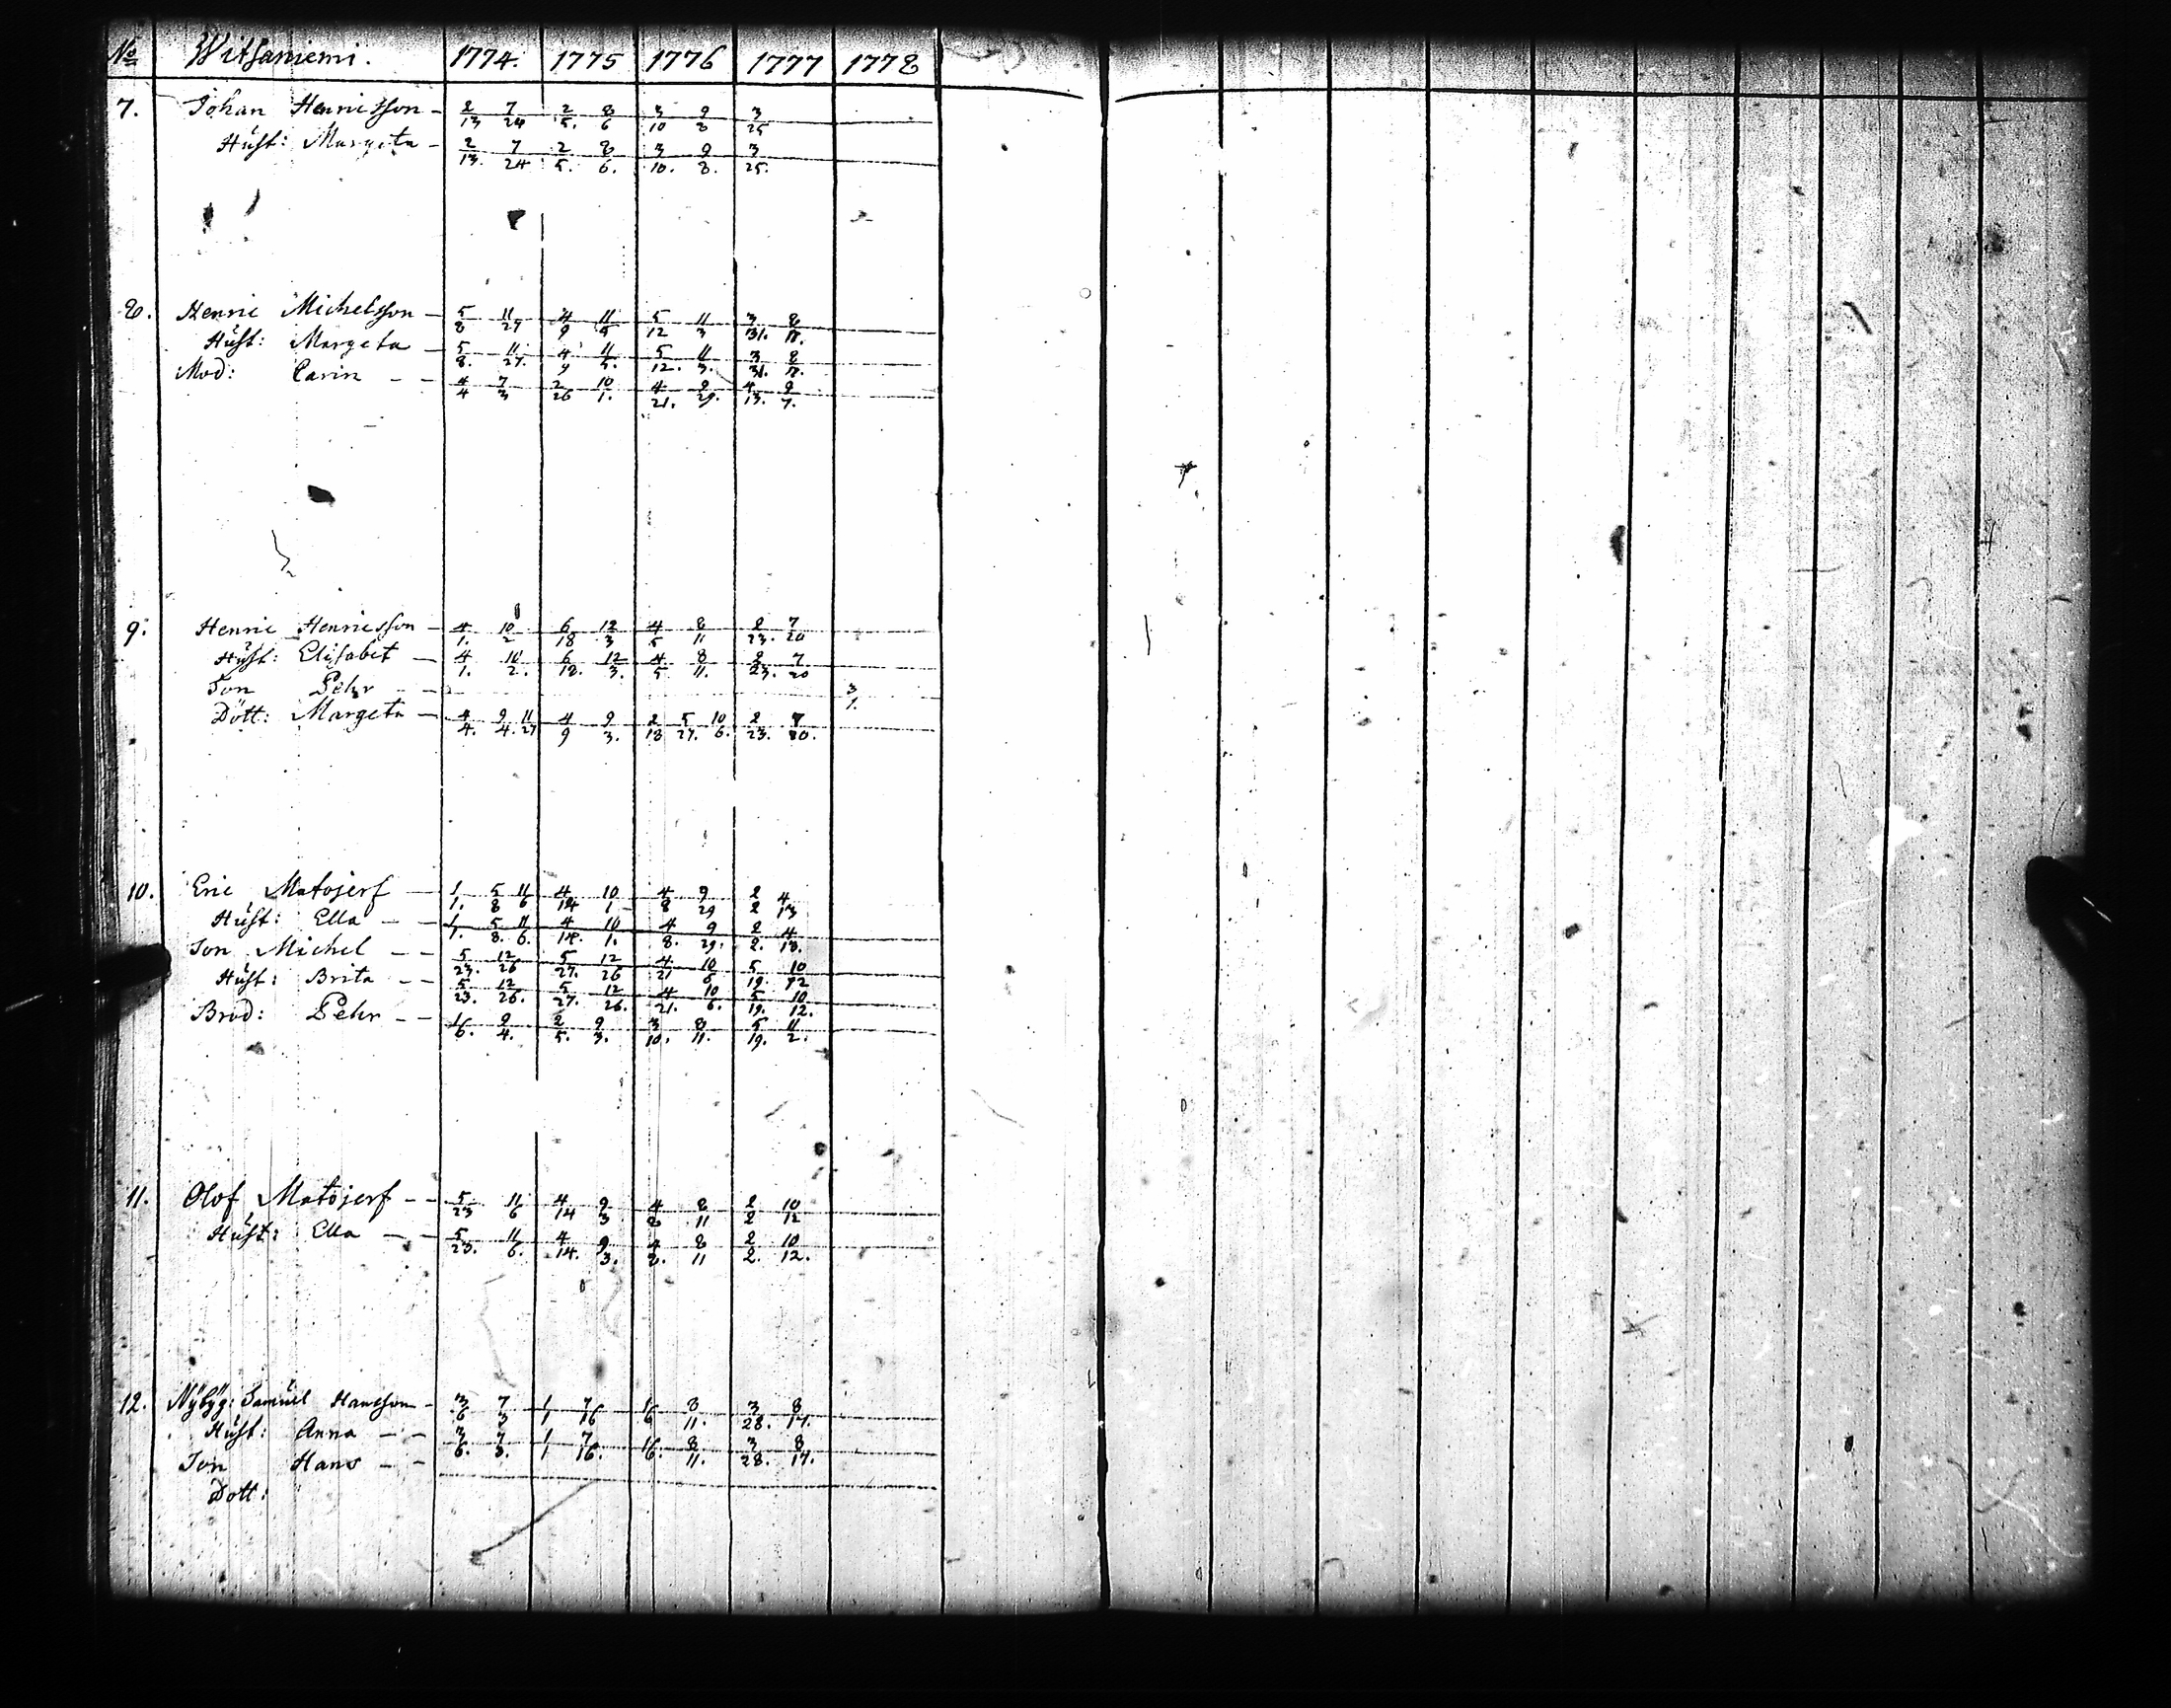 No Witsaniemi. 1774. 1775 1776 1777 1778
7. Johan Henricsson - 2/13 7/24 2/5. 8/6 3/10 9/8 3/25
Hust: Margeta - 2/13. 7/24 2/5. 8/6. 3/10. 9/8. 3/25.
8. Henric Michelsson - 5/8 11/27 4/9 11/5 5/12 11/3 3/31. 8/17.
Hust: Margeta - 5/8. 11/27. 4/9 11/5. 5/12. 11/3. 3/31. 8/17.
Mod: Carin - - 4/4 7/3 2/26 10/1. 4/21. 9/29. 4/13. 9/7.
9. Henric Henricsson - 4/1. 10/2 6/18 12/3 4/5 8/11 2/23. 7/20
Hust: Elisabet - 4/1. 10/2. 6/18. 12/3. 4/5 8/11. 2/23. 7/20
Son Pehr - - 3/1.
Dött: Margeta - 4/4. 9/4. 11/27 4/9 9/3. 2/18 5/27. 10/6. 2/23. 7/20.
10. Eric Matojerf - 1/1. 5/8 11/6 4/14 10/1 4/8 9/29 2/2 4/13
Hust: Ella - - 1/1. 5/8. 11/6. 4/14. 10/1. 4/8. 9/29. 2/2. 4/13.
Son Michel - - 5/23. 12/26 5/27. 12/26 4/21 10/6 5/19. 10/12
Hust: Brita - - 5/23. 12/26. 5/27. 12/26. 4/21. 10/6. 5/19. 10/12.
Brod: Pehr - - 1/6. 9/4. 2/5. 9/3. 3/10. 8/11. 5/19. 11/2.
11. Olof Matojerf - - 5/23 11/6 4/14 9/3 4/8 8/11 2/2 10/12
Hust: Ella - - 5/23. 11/6. 4/14. 9/3. 4/8. 8/11 2/2. 10/12.
12. Nybyg: Samuel Hansson - 3/6 7/3 1/1 7/16 1/6 8/11. 3/28. 8/17.
Hust: Anna - - 3/6. 7/3. 1/1 7/16. 1/6. 8/11. 3/28. 8/17.
Son Hans - -
Dott: